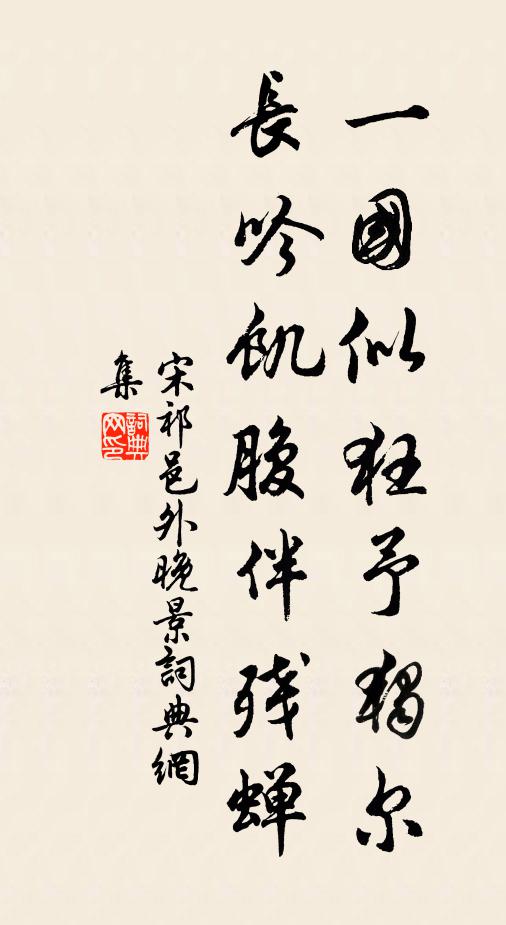 一國似狂予獨尔
長吟飢腹伴殘蟬
宋祁邑外晚景詞典網
集
詞典
网印